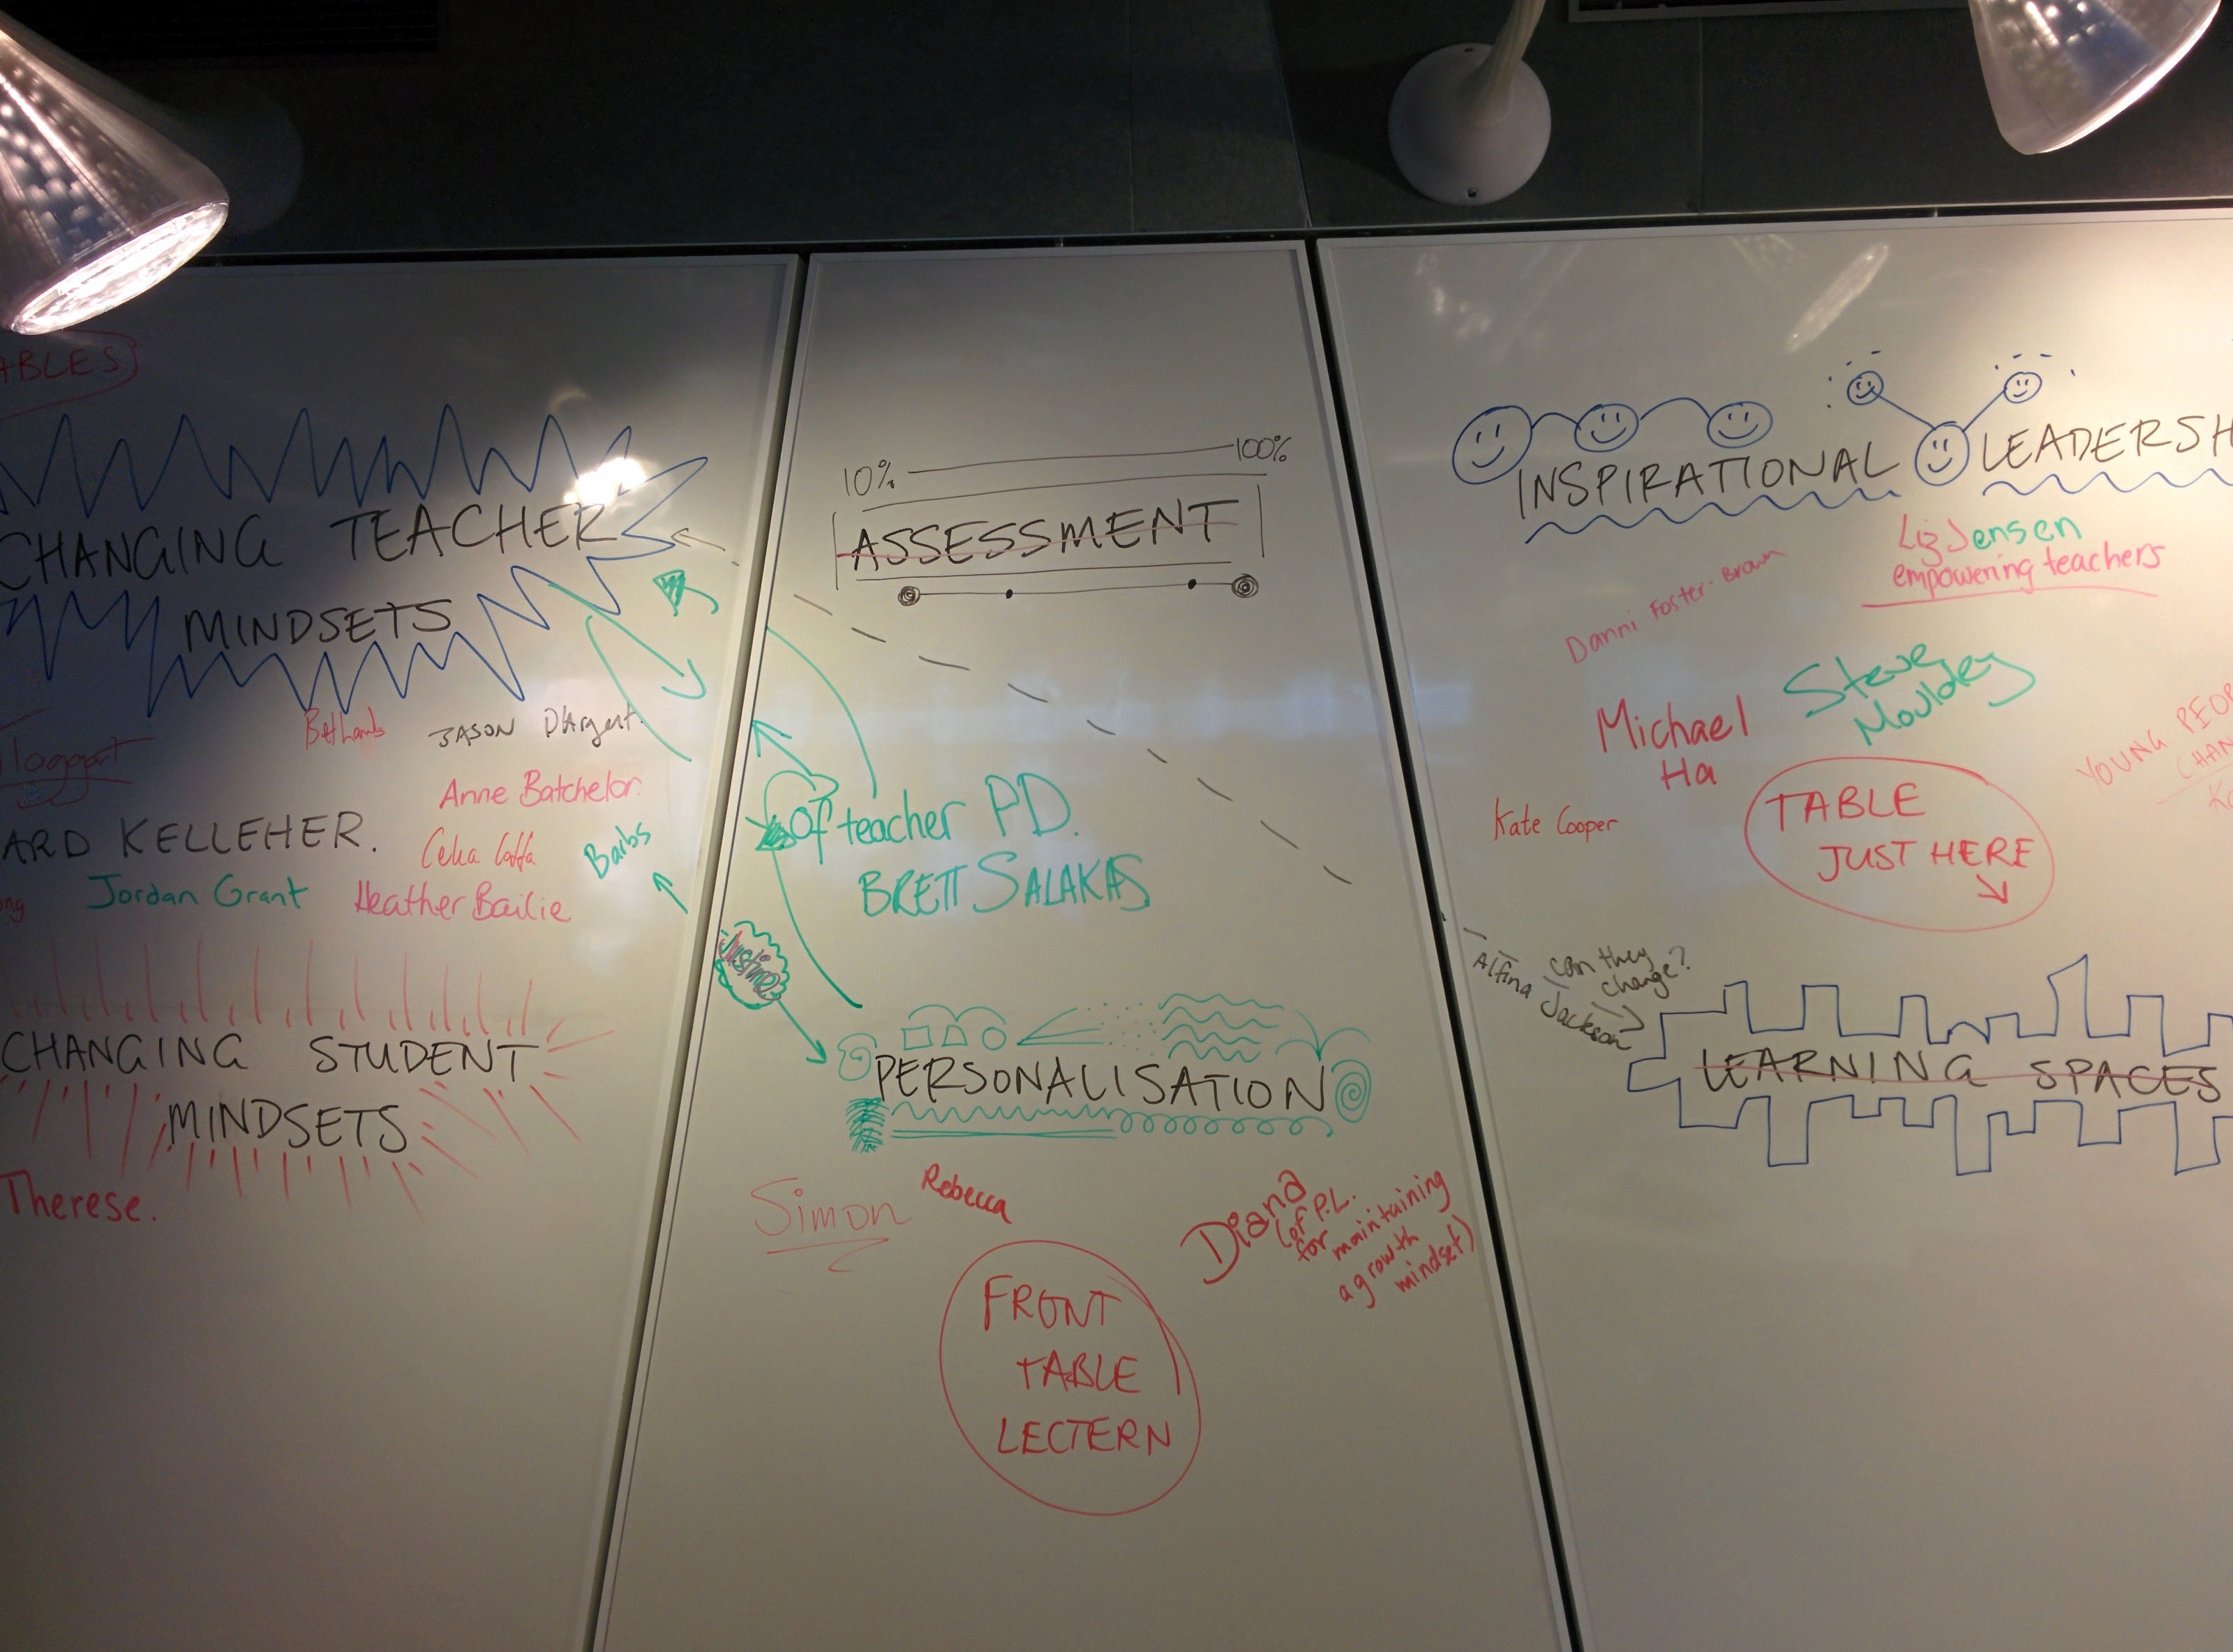 ABLES
CHANGING TEACHER
MINDSETS
JASON D'Argent.
Anne Batchelor.
ARD KELLEHER.
Celia
Baibs
Jordan Grant
Heather Bailie
CHANGING STUDENT
MINDSETS
Therese.
10% 100%
ASSESSMENT
of teacher PD.
BRETT SALAKAS
Justine
PERSONALISATION
Simon
Rebecca
Diana
(of P.L.
for maintaining
a growth
mindset)
FRONT
TABLE
LECTERN
INSPIRATIONAL LEADERSH
Liz Jensen
empowering teachers
Danni Foster-Brown
Steve
Mouldey
Michael
Ha
Kate Cooper
YOUNG PEOP
CHAN
TABLE
JUST HERE
can they
change?
Alfina Jackson
LEARNING SPACES